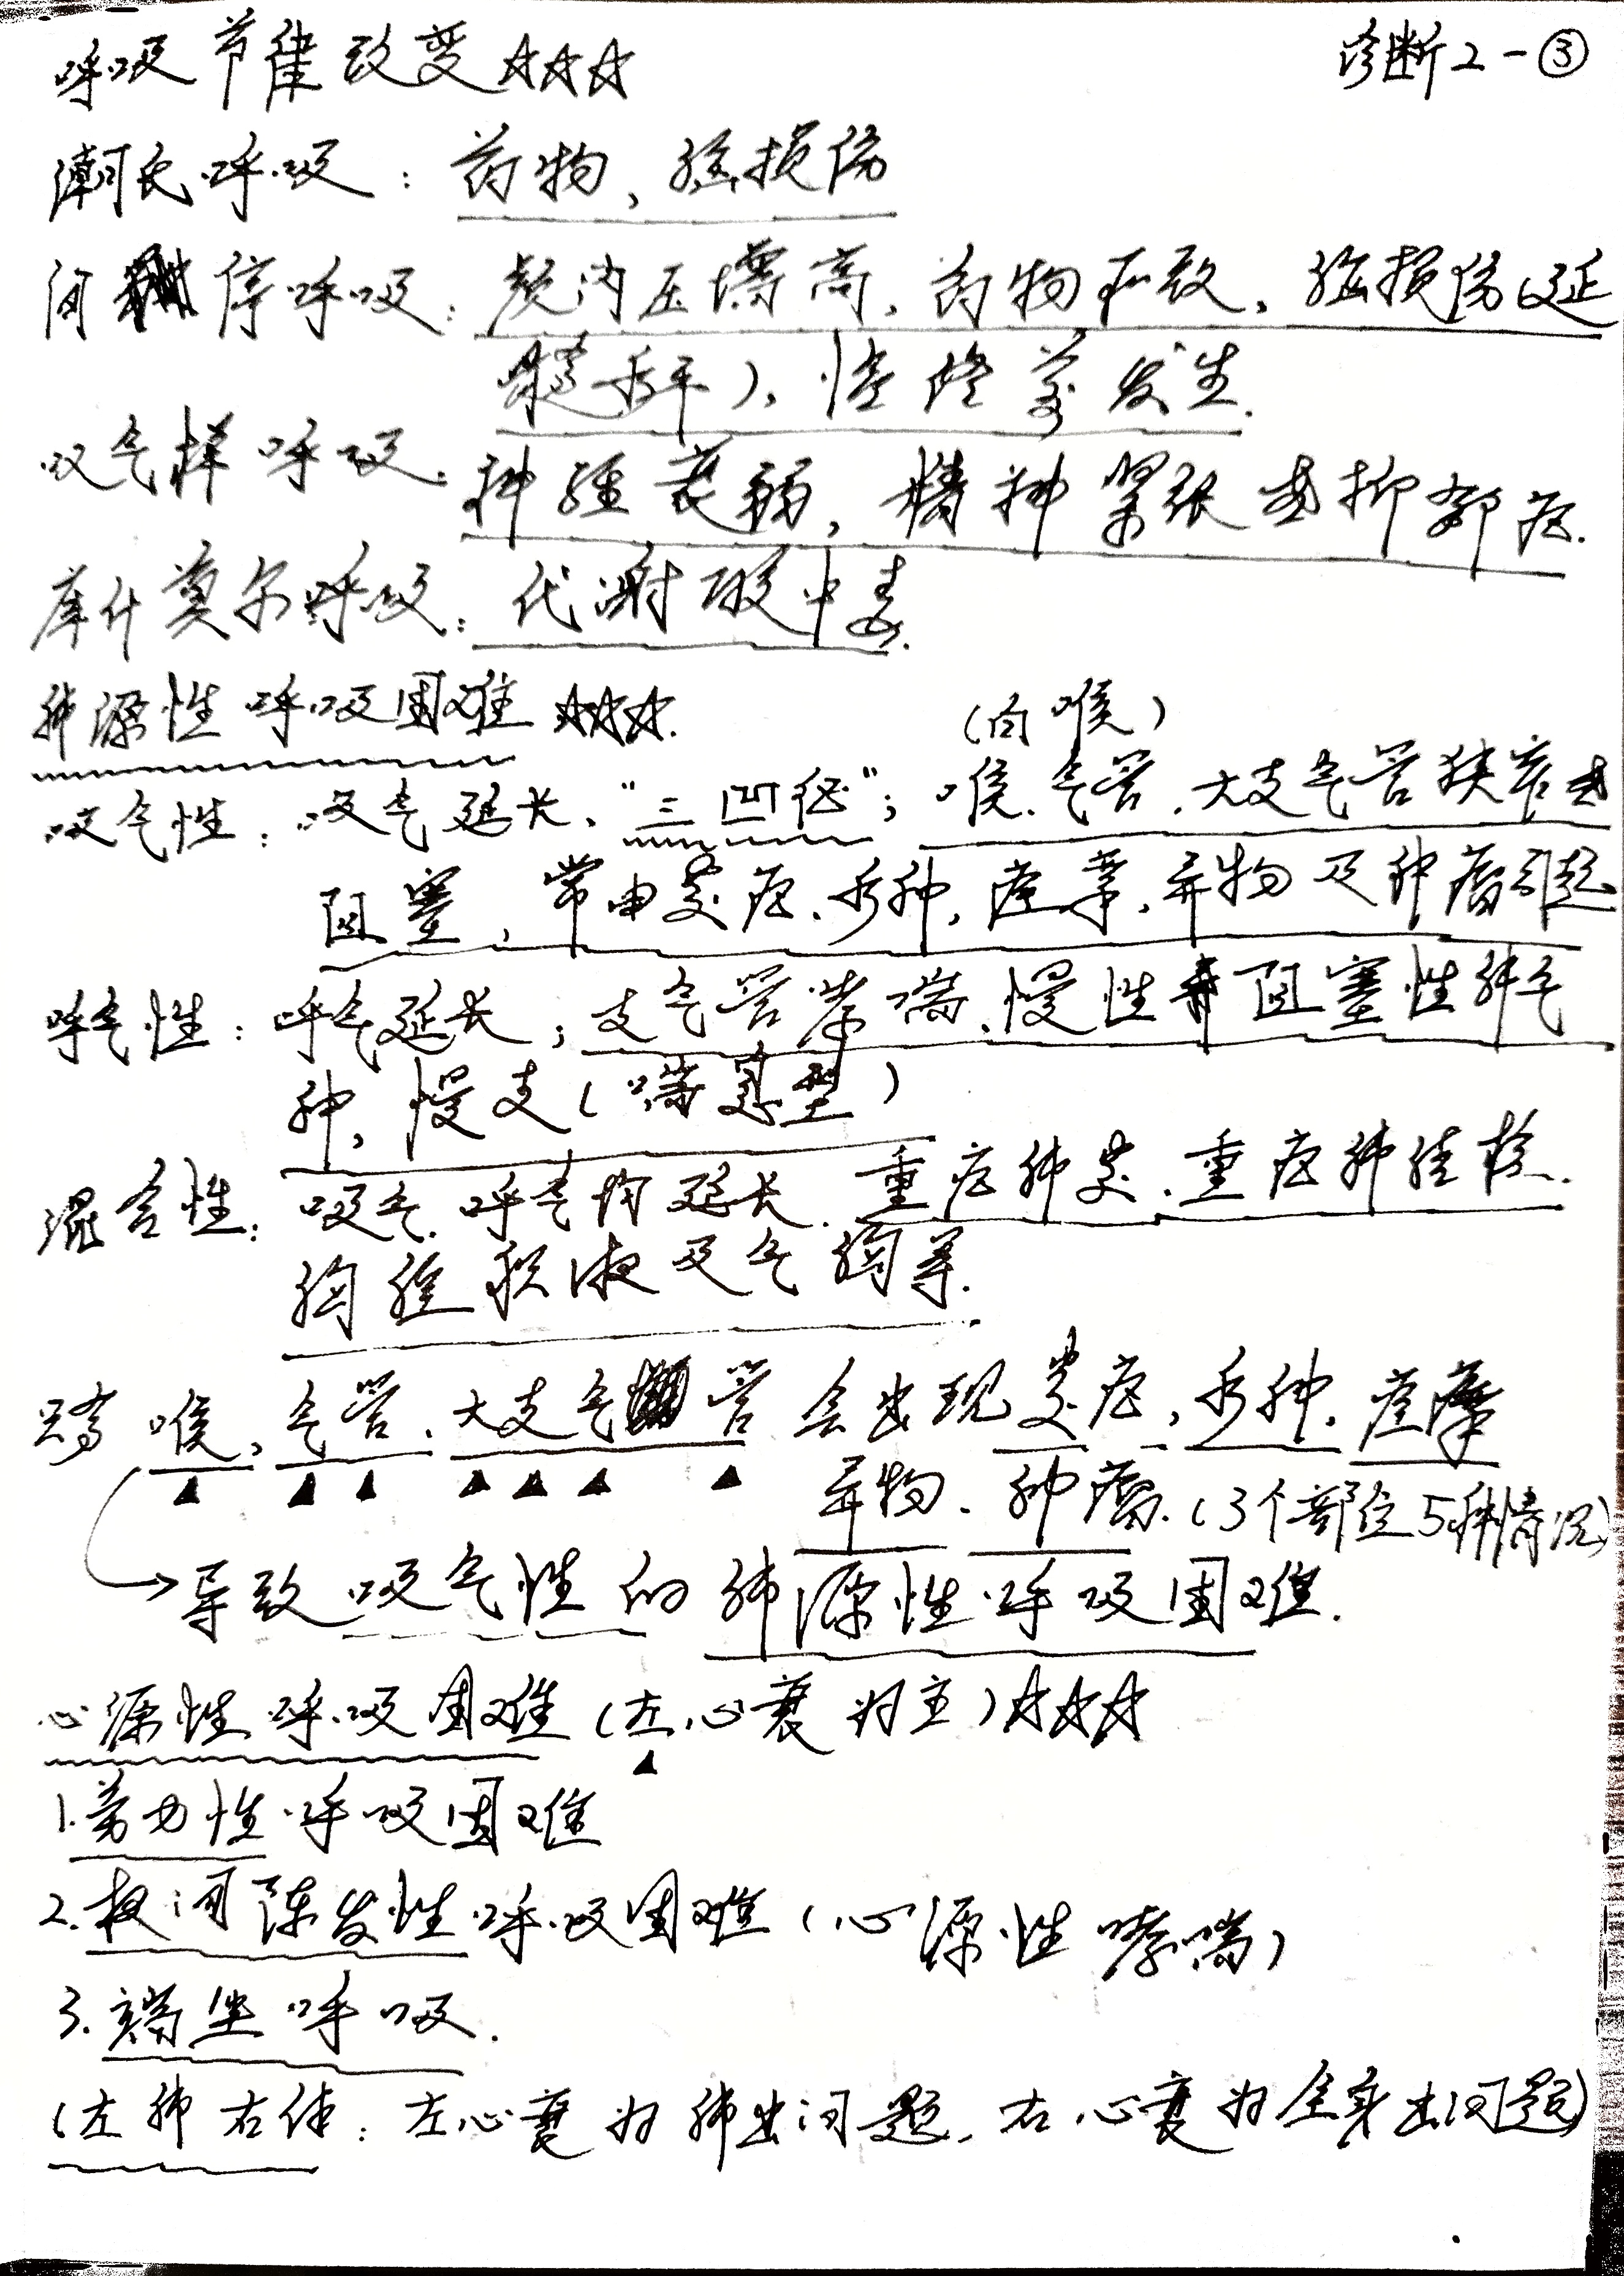 诊断2-③
呼吸节律改变☆☆☆
潮氏呼吸：药物、脑损伤
间停呼吸：颅内压增高、药物所致、脑损伤(延
髓水平)、临终前发生.
叹气样呼吸：神经衰弱、精神紧张或抑郁症.
库什莫尔呼吸：代谢酸中毒.
肺源性呼吸困难☆☆☆.
(白喉)
吸气性：吸气延长、“三凹征”；喉、气管、大支气管狭窄或
阻塞，常由炎症、水肿、痉挛、异物及肿瘤引起
呼气性：呼气延长；支气管哮喘、慢性阻塞性肺气
肿、慢支(喘息型)
混合性：吸气、呼气均延长、重症肺炎、重症肺结核、
胸腔积液及气胸等.
喉、气管、大支气管会出现炎症、水肿、痉挛
异物、肿瘤.(3个部位5种情况)
→导致吸气性的肺源性呼吸困难.
心源性呼吸困难(左心衰为主)☆☆☆
1.劳力性呼吸困难
2.夜间阵发性呼吸困难(心源性哮喘)
3.端坐呼吸.
(左肺右体：左心衰为肺出问题、右心衰为全身出问题)